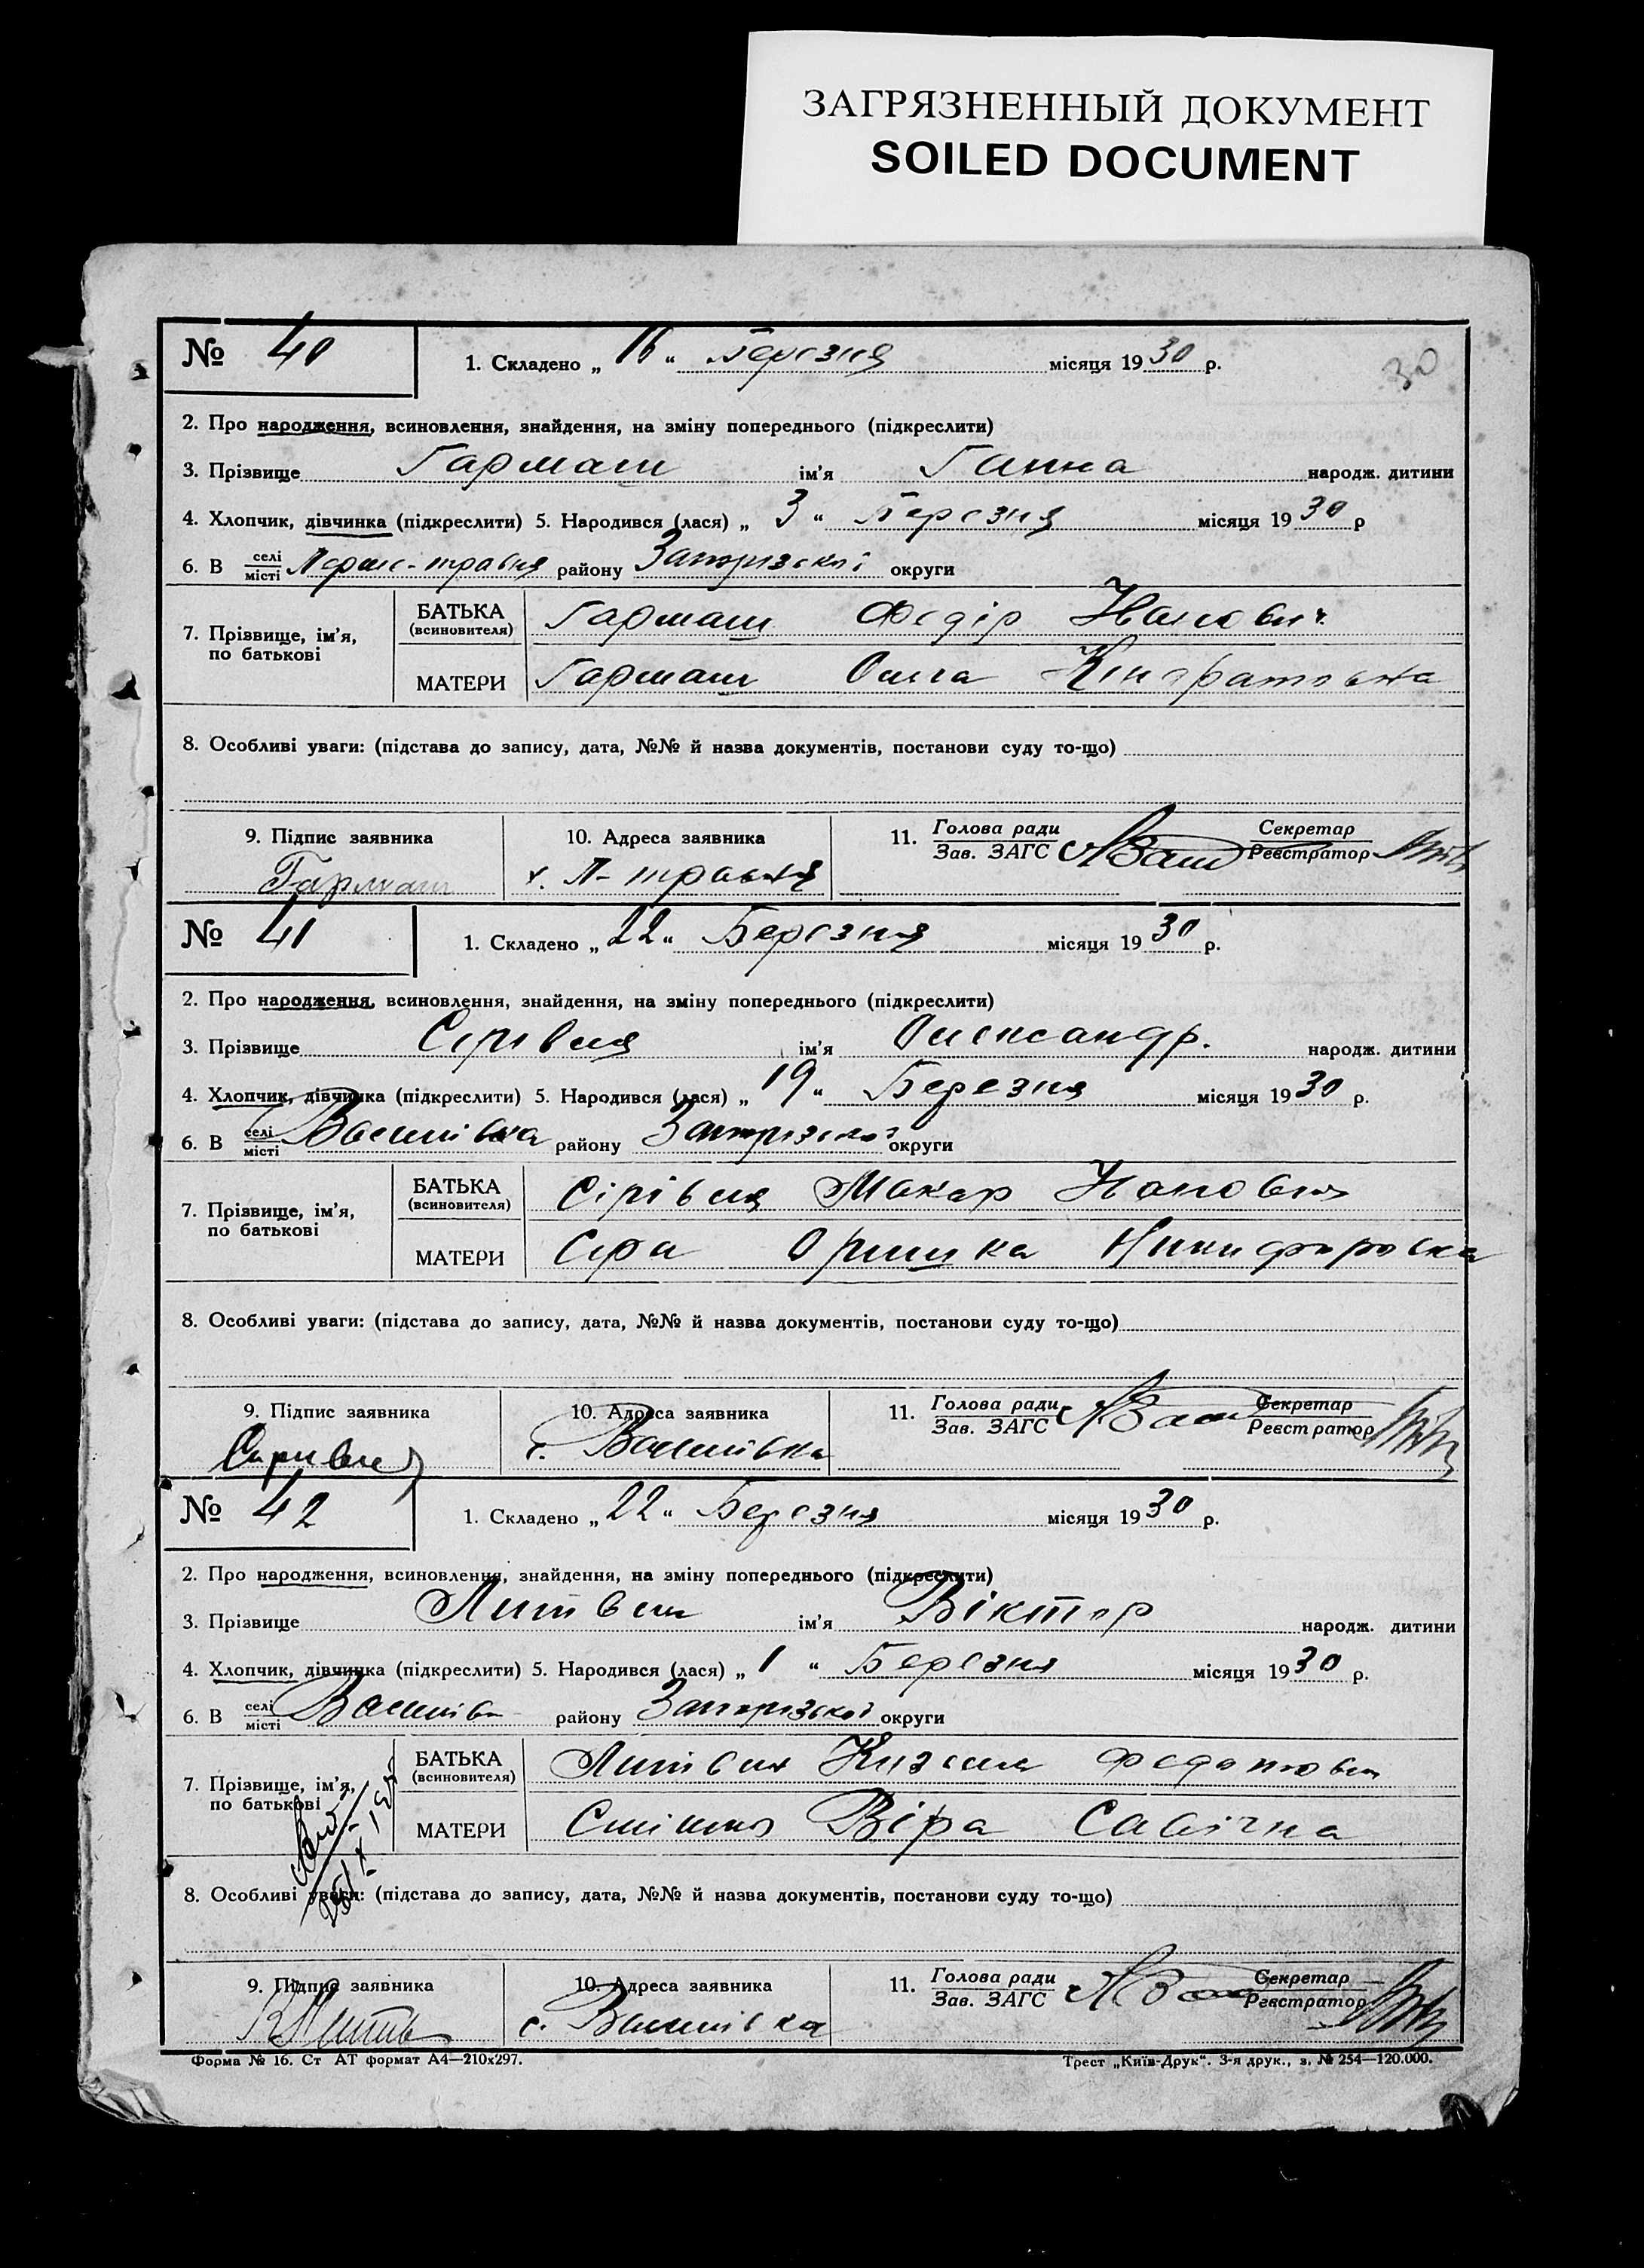 ЗАГРЯЗНЕННЫЙ ДОКУМЕНТ
SOILED DOCUMENT
30
№ 40 1. Складено „ 16 “ Березня місяця 1930 р.
2. Про народження, всиновлення, знайдення, на зміну попереднього (підкреслити)
3. Прізвище Гармаш ім’я Ганна народж. дитини
4. Хлопчик, дівчинка (підкреслити) 5. Народився (лася) „ 3 “ Березня місяця 1930 р
6. В селі/місті Перше-травня району Запорізької округи
7. Прізвище, ім’я, по батькові
БАТЬКА (всиновителя) Гармаш Федір
МАТЕРИ Гармаш Ольга Кіндратовна
8. Особливі уваги: (підстава до запису, дата, №№ й назва документів, постанови суду то-що)
9. Підпис заявника 10. Адреса заявника 11. Голова ради / Зав. ЗАГС Секретар / Реєстратор
Гармаш х. П-травня
№ 41 1. Складено „ 22 “ Березня місяця 1930 р.
2. Про народження, всиновлення, знайдення, на зміну попереднього (підкреслити)
3. Прізвище ім’я Олександр. народж. дитини
4. Хлопчик, дівчинка (підкреслити) 5. Народився (лася) „ 19 “ Березня місяця 1930 р.
6. В селі/місті району Запорізької округи
7. Прізвище, ім’я, по батькові
БАТЬКА (всиновителя) Макар
МАТЕРИ Оришка Никифоровна
8. Особливі уваги: (підстава до запису, дата, №№ й назва документів, постанови суду то-що)
9. Підпис заявника 10. Адреса заявника 11. Голова ради / Зав. ЗАГС Секретар / Реєстратор
с.
№ 42 1. Складено „ 22 “ Березня місяця 1930 р.
2. Про народження, всиновлення, знайдення, на зміну попереднього (підкреслити)
3. Прізвище Литвин ім’я Віктор народж. дитини
4. Хлопчик, дівчинка (підкреслити) 5. Народився (лася) „ 1 “ Березня місяця 1930 р.
6. В селі/місті району Запорізької округи
7. Прізвище, ім’я, по батькові
БАТЬКА (всиновителя) Литвин
МАТЕРИ Віра Савічна
8. Особливі уваги: (підстава до запису, дата, №№ й назва документів, постанови суду то-що)
9. Підпис заявника 10. Адреса заявника 11. Голова ради / Зав. ЗАГС Секретар / Реєстратор
с.
Форма № 16. Ст АТ формат А4—210х297. Трест „Київ-Друк“. 3-я друк., з. № 254—120.000.